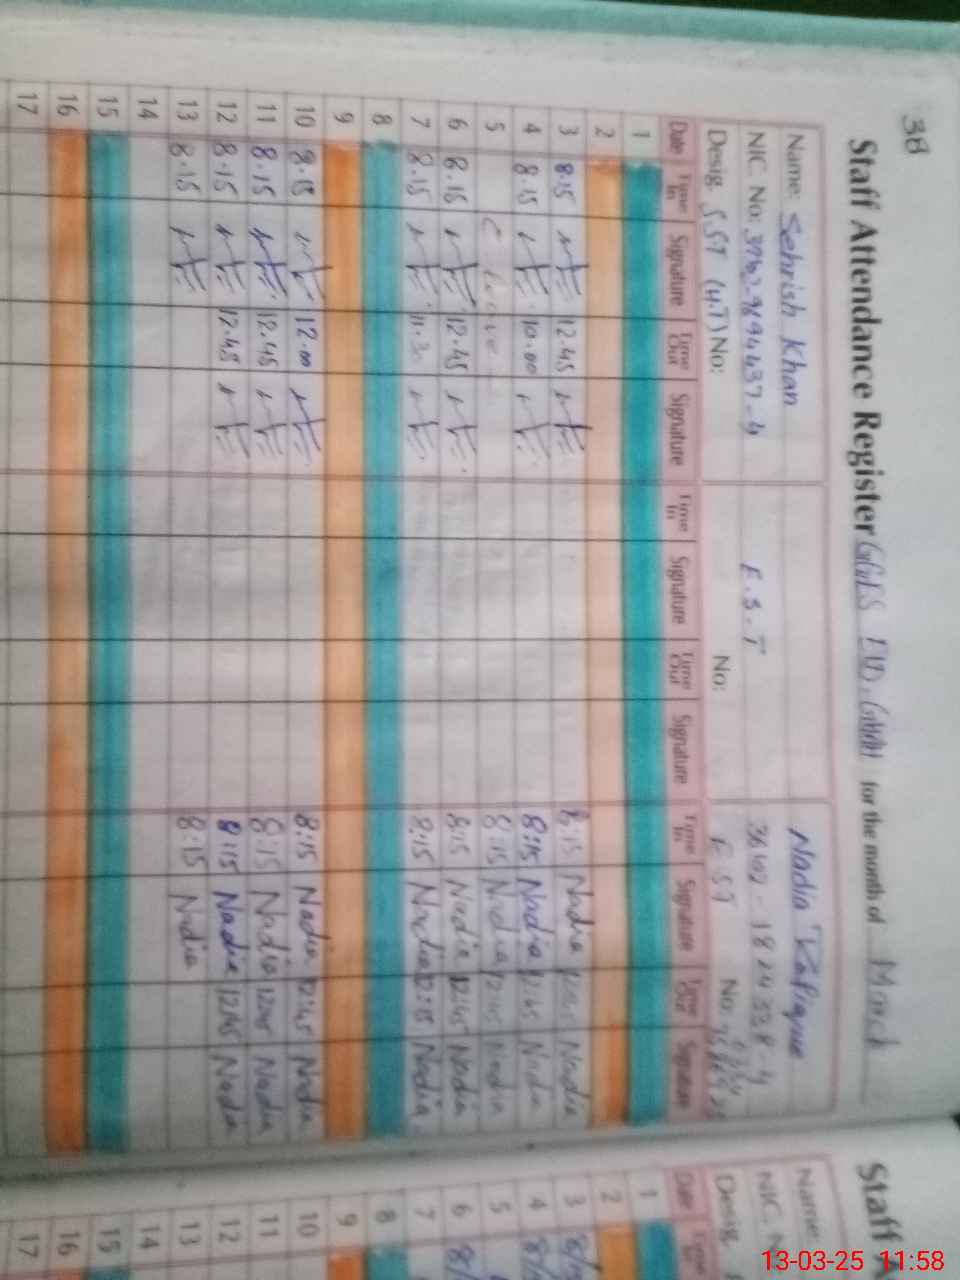 38
Staff Attendance Register for the month of March
Name: Sehrish Khan Nadia Rafique
NIC. No: E.S.T
Desig. SST No: No: EST No:
Date Time In Signature Time Out Signature Time In Signature Time Out Signature Time In Signature Time Out Signature
1
2
3 8.15 12.45 8:15 Nadia 12:45 Nadia
4 8.15 10.00 8:15 Nadia 12:45 Nadia
5 C Leave 8:15 Nadia 12:45 Nadia
6 8.15 12.45 8:15 Nadia 12:45 Nadia
7 8.15 11.30 8:15 Nadia 12:15 Nadia
8
9
10 8.15 12.00 8:15 Nadia 12:45 Nadia
11 8.15 12.45 8:15 Nadia 12:45 Nadia
12 8.15 12.45 8:15 Nadia 12:45 Nadia
13 8.15 8:15 Nadia
14
15
16
17
Staff
Name:
NIC. N
Desig.
Date Time
1
2
3
4
5
6
7
8
9
10
11
12
13
14
15
16
17
13-03-25 11:58